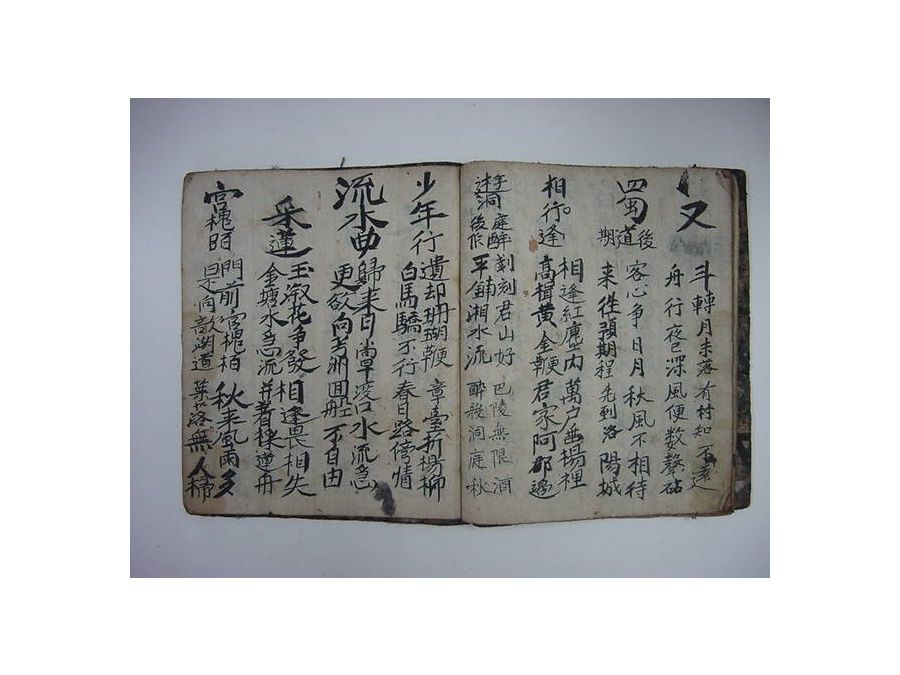 又
斗轉月未落有村知不遠
舟行夜已深風便数聲砧
蜀
道後期
客心争日月秋風不相待
来往預期程先到洛陽城
相逢行
相逢紅塵内萬户垂楊裡
高揖黄金鞭君家阿那邊
洞庭醉後作
剗刻君山好巴陵無限酒
平鋪湘水流醉殺洞庭秋
少年行
遺却珊瑚鞭章臺折楊柳
白馬驕不行春日路傍情
流水曲
歸来日尚早渡口水流急
更欲向芳洲回船不自由
采蓮
玉溆花争發相逢畏相失
金塘水急流並著採蓮舟
宮槐陌
門前宮槐陌秋来風雨多
是向欹湖道葉落無人掃